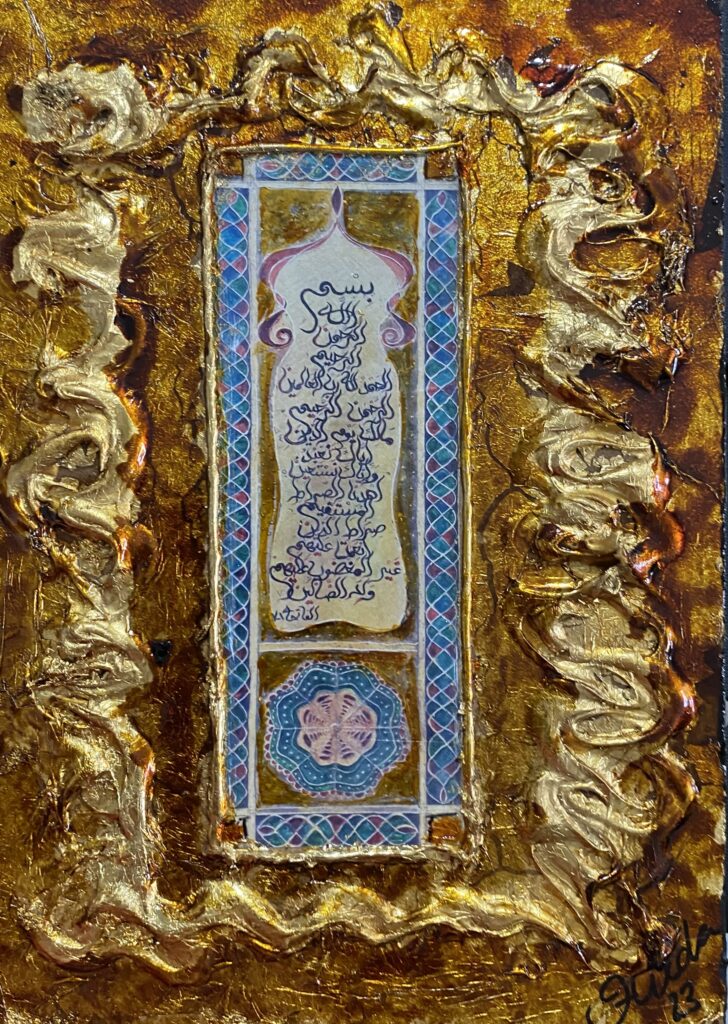 بسم
الله
الرحمن
الرحيم
الحمد لله رب العالمين
الرحمن الرحيم
ملك يوم الدين
اياك نعبد
واياك نستعين
اهدنا الصراط
المستقيم
صراط الذين
انعمت عليهم
غير المغضوب عليهم
ولا الضالين
الفاتحة
23